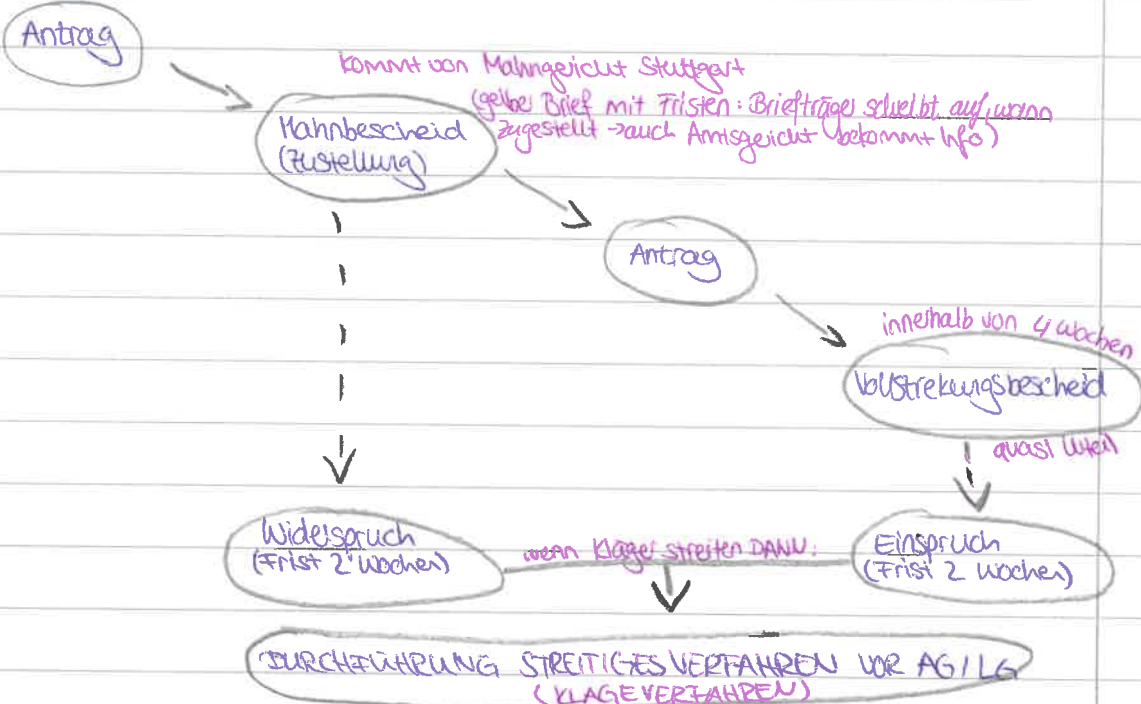 Antrag
kommt von Mahngericht Stuttgart
(gelber Brief mit Fristen: Briefträger schreibt auf, wann
zugestellt → auch Amtsgericht bekommt Info)
Mahnbescheid
(Zustellung)
Antrag
innerhalb von 4 Wochen
Vollstrekungsbescheid
quasi Urteil
Widerspruch
(Frist 2 Wochen)
wenn Kläger streiten DANN:
Einspruch
(Frist 2 Wochen)
DURCHFÜHRUNG STREITIGES VERFAHREN VOR AG/LG
(KLAGEVERFAHREN)